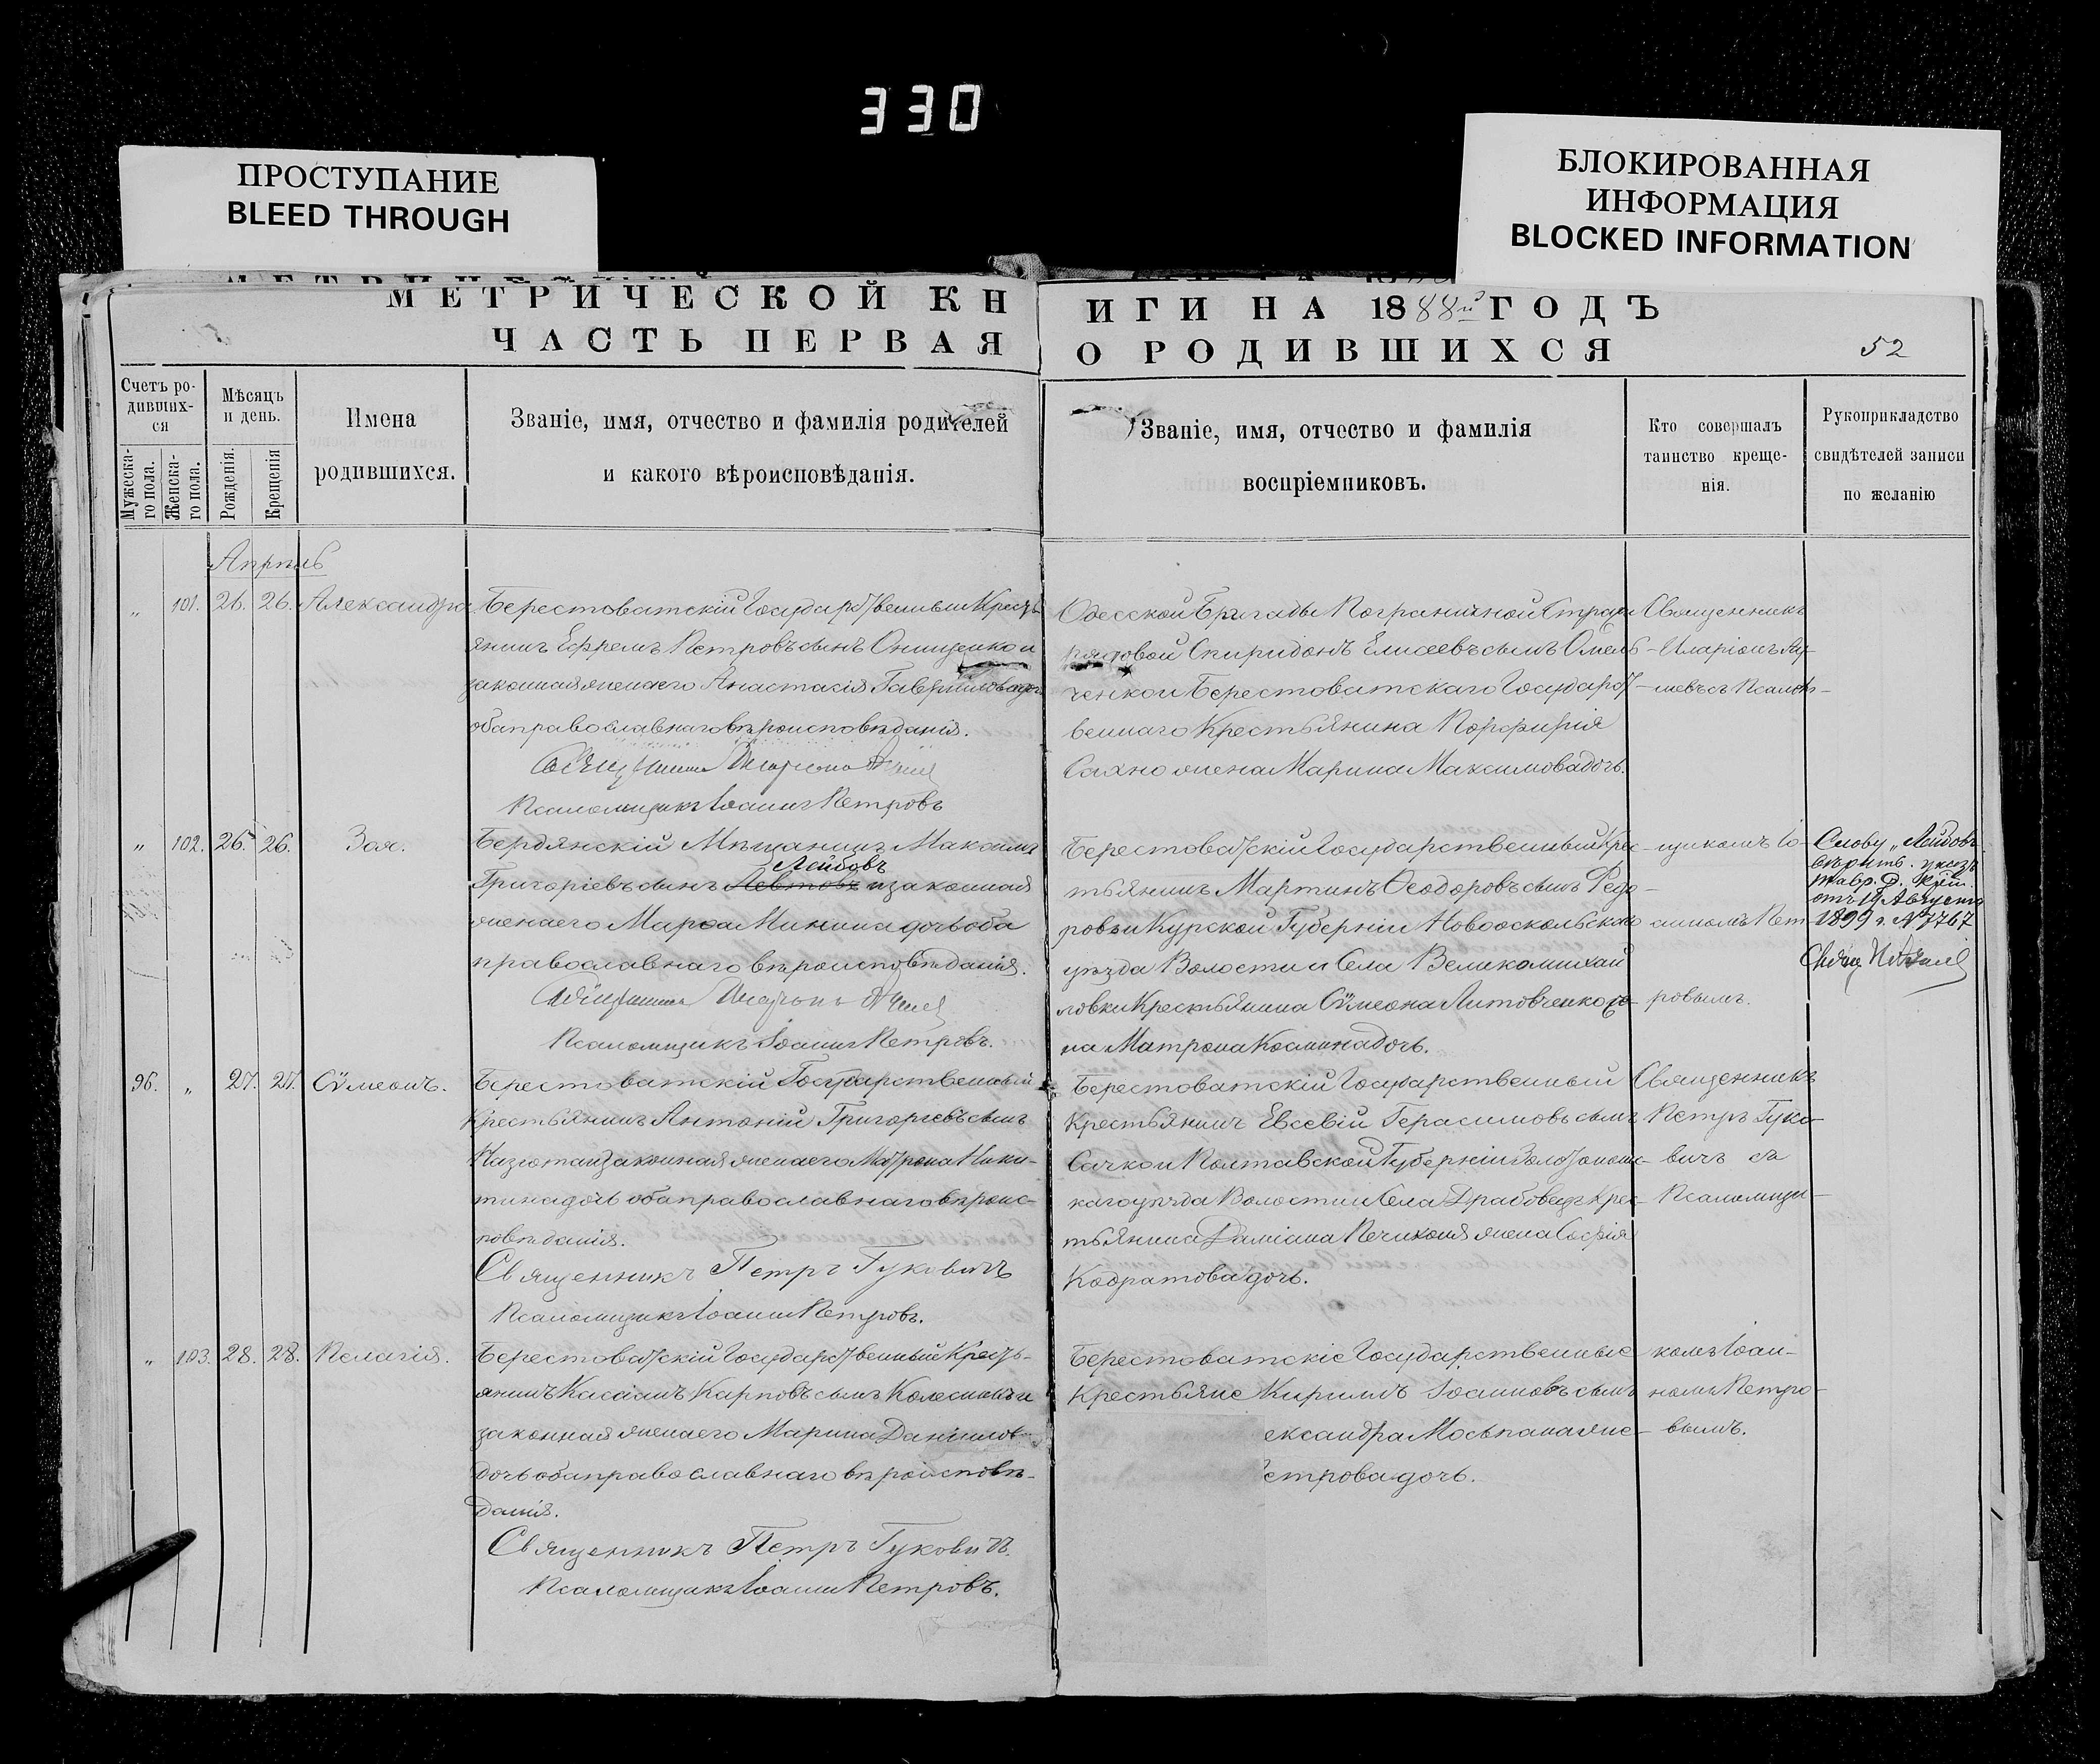 330
ПРОСТУПАНИЕ
BLEED THROUGH
БЛОКИРОВАННАЯ
ИНФОРМАЦИЯ
BLOCKED INFORMATION
МЕТРИЧЕСКОЙ КН
ЧАСТЬ ПЕРВАЯ
ИГИ НА 1888й ГОДЪ
О РОДИВШИХСЯ
52
Счетъ ро-
дивших-
ся
Мужеска-
го пола.
Женска-
го пола.
Мѣсяцъ
и день.
Рожденія.
Крещенія
Имена
родившихся.
Званіе, имя, отчество и фамилія родителей
и какого вѣроисповѣданія.
Званіе, имя, отчество и фамилія
воспріемниковъ.
Кто совершалъ
таинство креще-
нія.
Рукоприкладство
свидѣтелей записи
по желанію
Апрѣль
„ 101. 26. 26. Александра
Берестоватскій Государственный Кресть-
янинъ Ефремъ Петровъ сынъ Онищенко и
законная жена его Анастасія Гаврилова дочь
оба православнаго вѣроисповѣданія.
Священникъ
Псаломщикъ Іоаннъ Петровъ
Одесской Бригады Пограничной Стражи
рядовой Спиридонъ Елисеевъ сынъ Омель-
ченко и Берестоватскаго Государст-
веннаго Крестьянина Порфирія
Сахно жена Марина Максимова дочь.
Священникъ
Иларіонъ
съ Псалом-
„ 102. 26. 26. Зоя.
Бердянскій Мѣщанинъ Максимъ
Лейбовъ
Григоріевъ сынъ и законная
жена его Марѳа Минина дочь оба
православнаго вѣроисповѣданія.
Священникъ
Псаломщикъ Іоаннъ Петровъ.
Берестоватскій Государственный Крес-
тьянинъ Мартинъ Ѳеодоровъ сынъ Федо-
ровъ и Курской Губерніи Новооскольскаго
уѣзда Волости и Села Великомихай
ловки Крестьянина Сѵмеона Литовченко же-
на Матрона Космина дочь.
щикомъ Іо-
анномъ Пет-
ровымъ.
Слову „Лейбовъ
вѣрить. указъ
Тавр. Д.
отъ 19 Августа
1899 г. № 7767
Свящ.
96. „ 27. 27. Сѵмеонъ.
Берестоватскій Государственный
Крестьянинъ Антоній Григорьевъ сынъ
и законная жена его Матрона Ники-
тина дочь оба православнаго вѣроис-
повѣданія.
Священникъ Петръ Гуковичъ
Псаломщикъ Іоаннъ Петровъ.
Берестоватскій Государственный
Крестьянинъ Евсевій Герасимовъ сынъ
Сачко и Полтавской Губерніи Золотонош-
каго уѣзда Волости и Села Крес-
тьянина Даміана жена Софія
Кодратова дочь.
Священникъ
Петръ Гуко-
вичъ съ
Псаломщи-
„ 103. 28. 28. Пелагія.
Берестоватскій Государственный Кресть-
янинъ Касіанъ Карповъ сынъ Колесникъ и
законная жена его Марина Даніилова
дочь оба православнаго вѣроисповѣ-
данія.
Священникъ Петръ Гуковичъ.
Псаломщикъ Іоаннъ Петровъ.
Берестоватскіе Государственные
Крестьяне Кириллъ Іоанновъ сынъ
ександра Мосьпана же-
етрова дочь.
комъ Іоан-
номъ Петро-
вымъ.